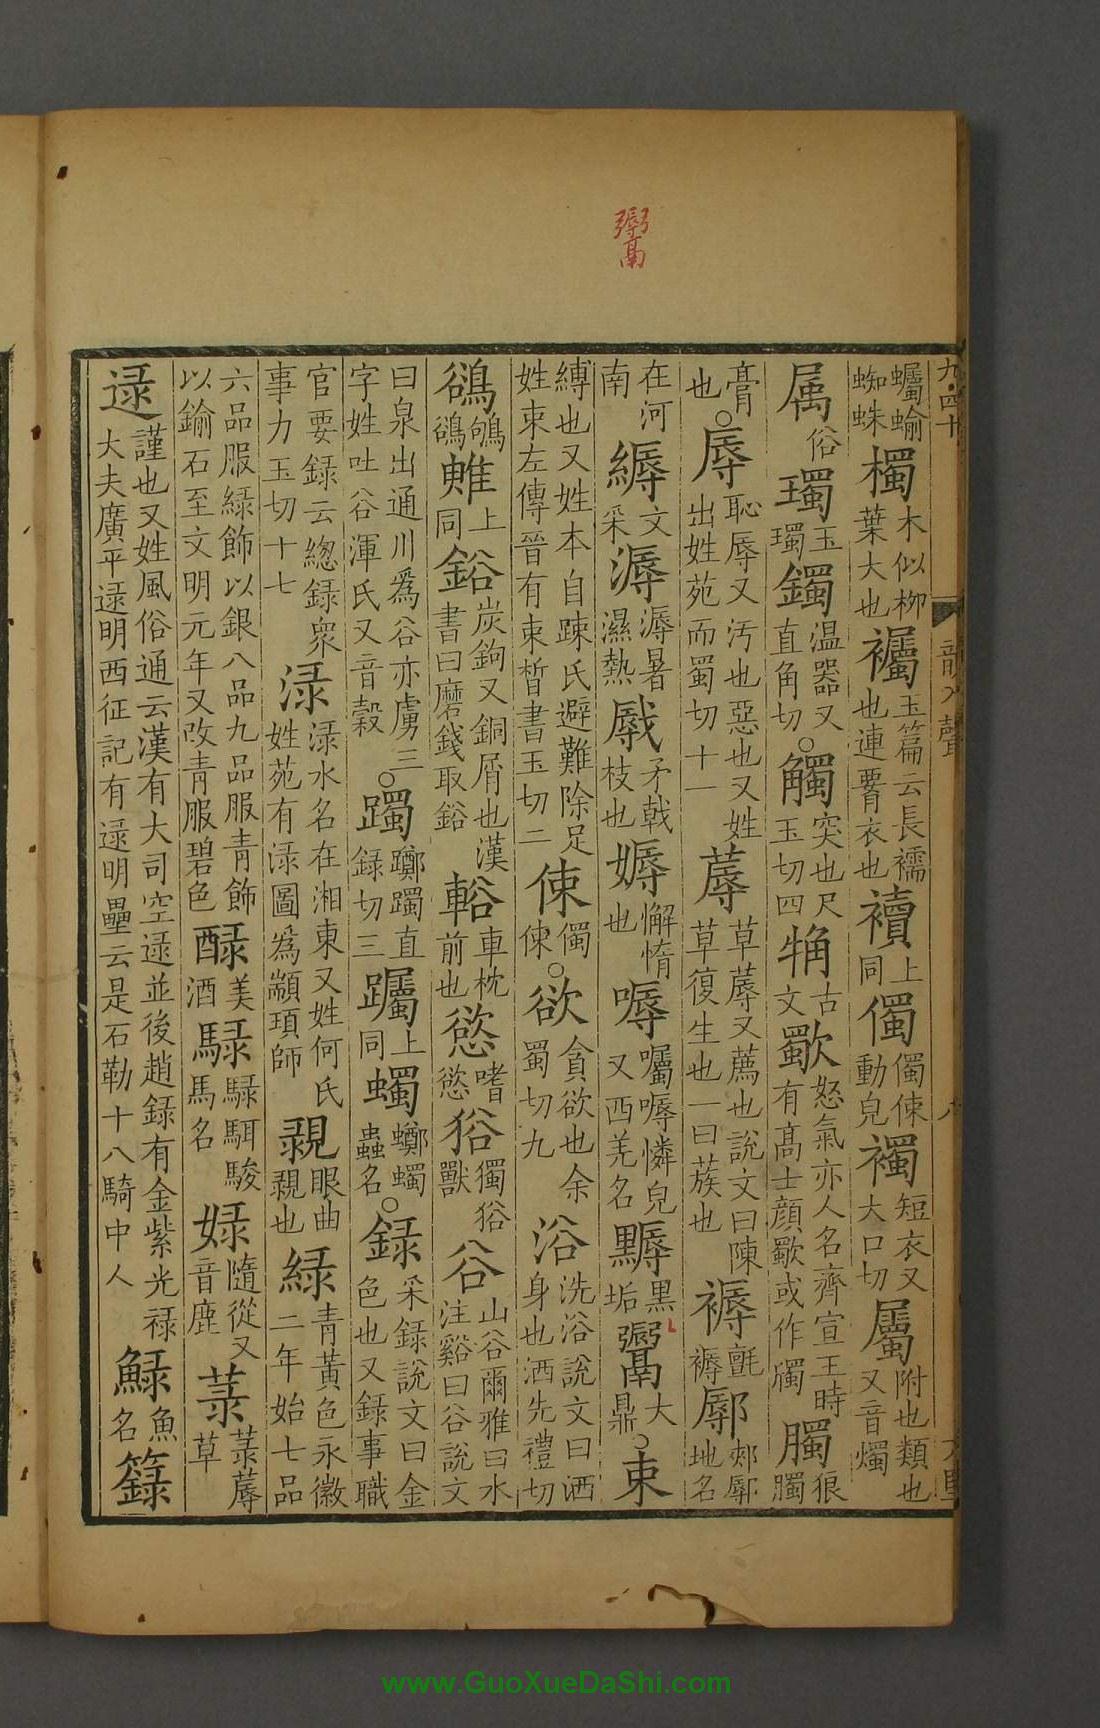 九四十
韻入聲
八
蠾蝓蜘蛛 欘木似柳葉大也 襡玉篇云長襦也連𦝫衣也 襩上同 㒔㒔倲動皃 襡短衣又大口切 屬附也類也又音燭
属俗 㻿玉㻿 鐲温器又直角切○觸突也尺玉切四 觕古文 歜怒氣亦人名齊宣王時有高士顔歜或作䐁 臅狼臅
膏也○辱恥辱又汚也惡也又姓出姓苑而蜀切十一 蓐草蓐又薦也說文曰陳草復生也一曰蔟也 褥氊褥 鄏郟鄏地名
在河南 縟文采 溽溽暑濕熱 㦺矛戟枝也 媷懈惰也 嗕囑嗕憐皃又西羌名 黣黑垢 鬻大鼎○束
縛也又姓本自踈氏避難除足姓束左傳晉有束晳書玉切二 倲㒔倲○欲貪欲也余蜀切九 浴洗浴說文曰洒身也洒先禮切
鵒鴝鵒 𩿎上同 鋊炭鉤又銅屑也漢書曰磨錢取鋊 輍車枕前也 慾嗜慾 𤞞獨𤞞獸 谷山谷爾雅曰水注谿曰谷說文
曰泉出通川爲谷亦虜三字姓吐谷渾氏又音榖○躅躑躅直録切三 躅上同 蠋蠋蟲名○録采録說文曰金色也又録事職
官要録云緫録衆事力玉切十七 渌渌水名在湘東又姓何氏姓苑有渌圖爲顓頊師 覶眼曲覶也 緑青黃色永徽二年始七品
六品服緑飾以銀八品九品服青飾以鍮石至文明元年又改青服碧色 醁美酒 騄騄駬駿馬名 娽隨從又音鹿 菉菉蓐草
逯謹也又姓風俗通云漢有大司空逯並後趙録有金紫光禄大夫廣平逯明西征記有逯明壘云是石勒十八騎中人 䱚魚名 籙
www.GuoXueDaShi.com